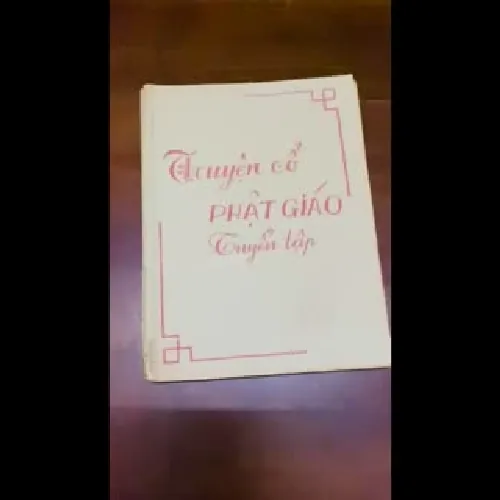 Truyện cổ
PHẬT GIÁO
Tuyển tập